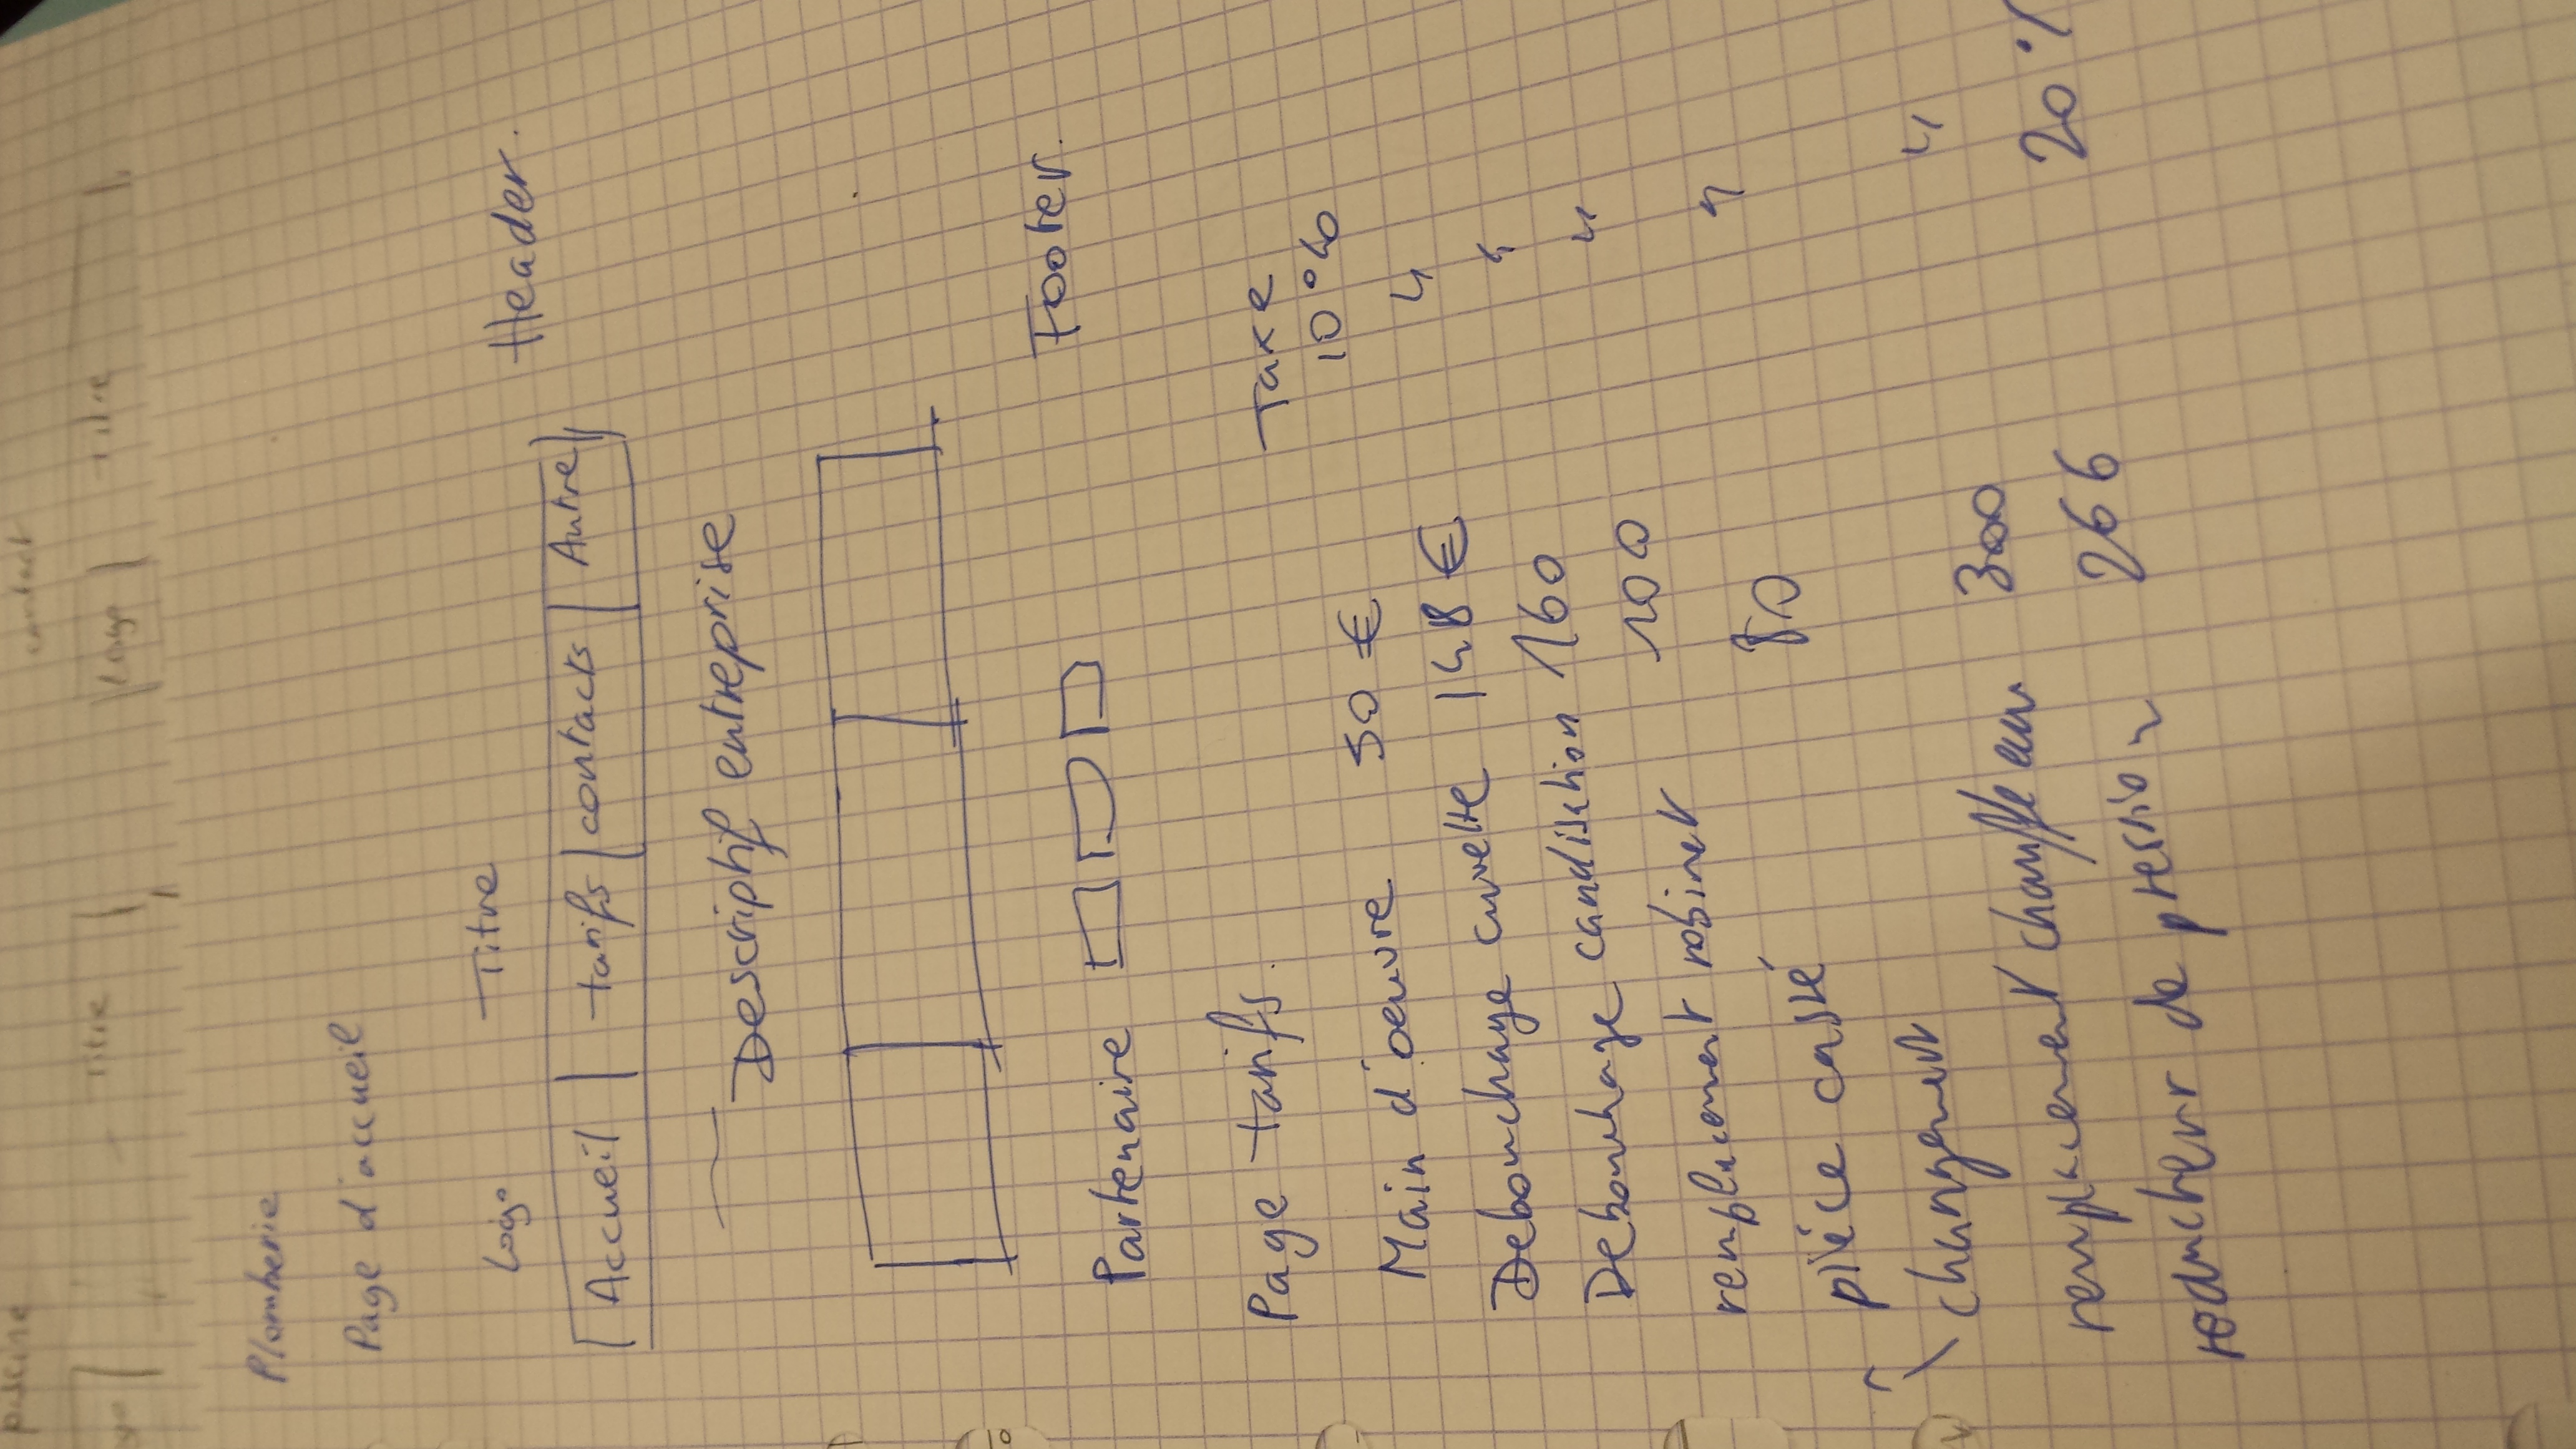 piscine
contact
Titre
Logo
Titre
Plomberie
Page d'accueil
Logo
Titre
Header.
Accueil
tarifs
contacts
Autre
Descriptif entreprise
Footer.
Partenaire
Page tarifs.
Taxe
10 %
Main d'oeuvre 50 €
Debouchage cuvette 148 €
Debouchage candisation 160
remplacement robinet 100
pièce cassé 80
changement
remplacement chauffe eau 300
reducteur de pression 266
20 %